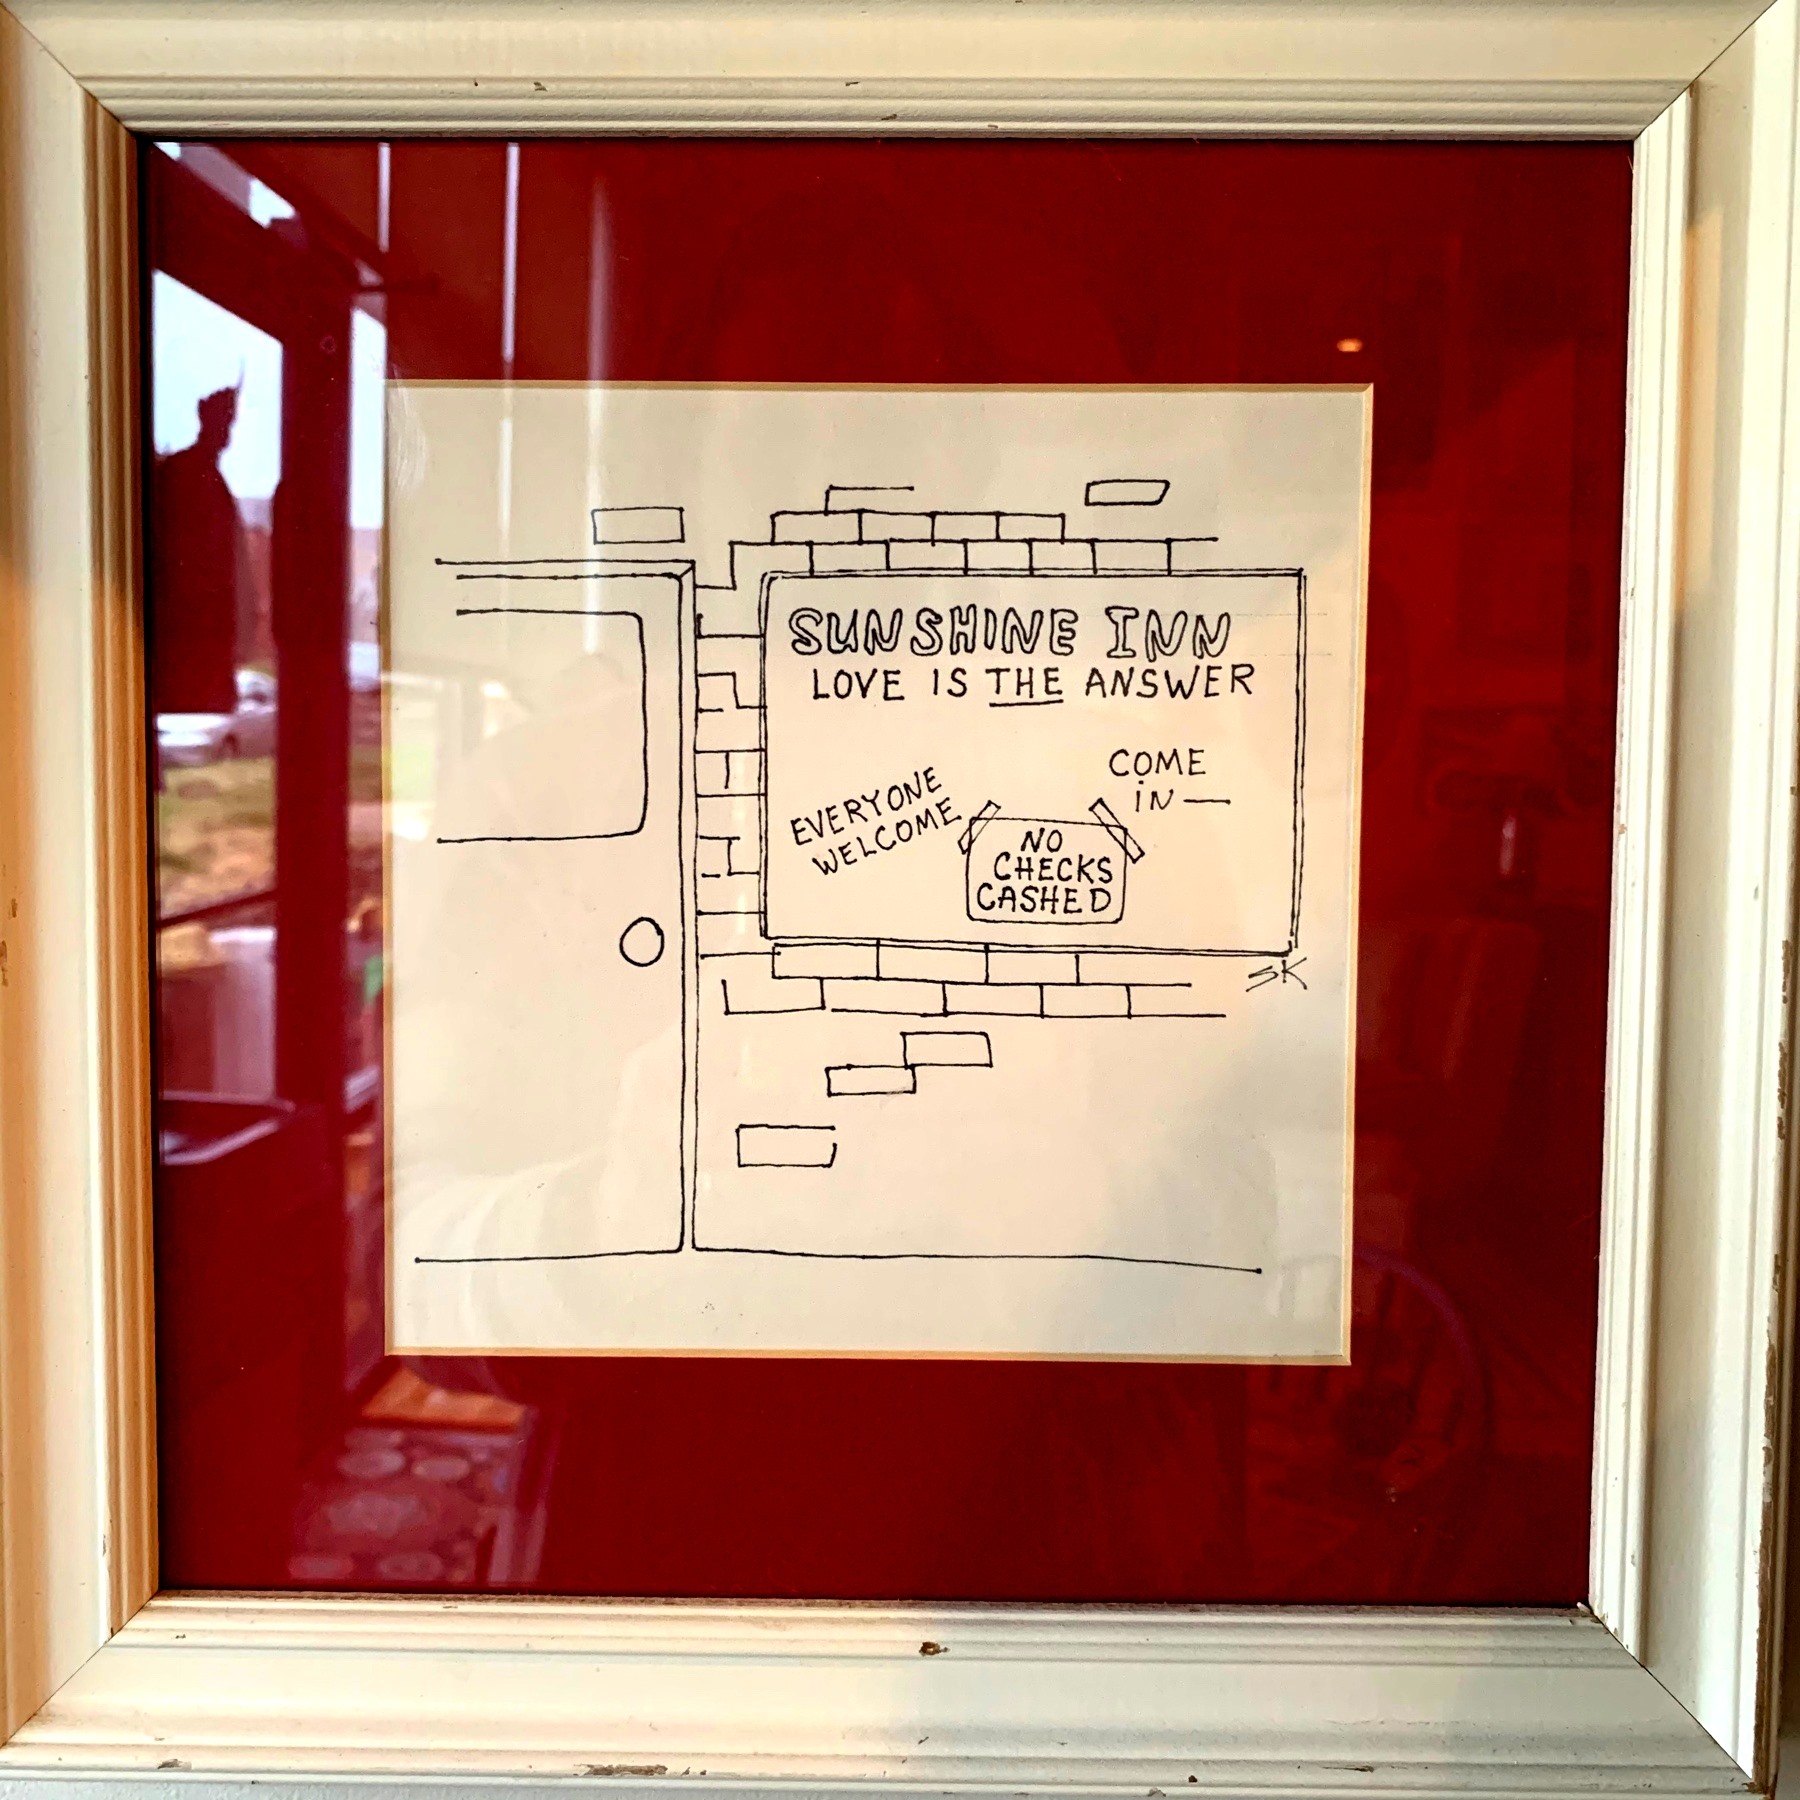 SUNSHINE INN
LOVE IS THE ANSWER
COME
IN—
EVERYONE
WELCOME
NO
CHECKS
CASHED
SK